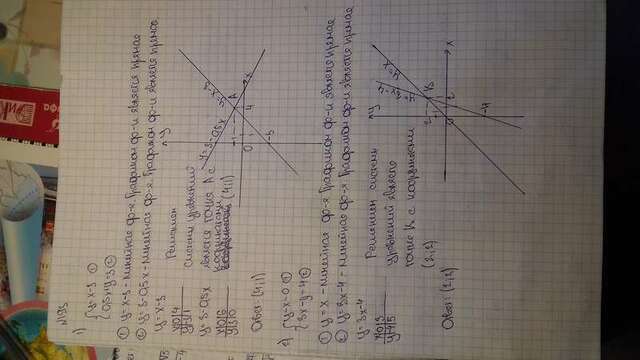 N193
1)
{ y=x-3 ①
{ 0,5x+y=3 ②
① y=x-3 - линейная ф-я. Графиком ф-и является прямая
② y=3-0,5x - линейная ф-я. Графиком ф-и является прямая
y=x-3
x|0|4
y|-3|1
Решением
системы уравнений
является точка A с
координатами
(4;1)
y=3-0,5x
x|0|6
y|3|0
Ответ: (4;1)
y
y=3-0,5x
y=x-3
1
A
0
1
4
x
-3
2)
{ y-x=0 ①
{ 3x-y=4 ②
① y=x - линейная ф-я. Графиком ф-и является прямая
② y=3x-4 - линейная ф-я. Графиком ф-и является прямая
y=3x-4
x|0|3
y|-4|5
Решением системы
уравнений является
точка K с координатами
(2;2)
Ответ: (2;2)
y
y=3x-4
y=x
2
K
0
2
x
-4